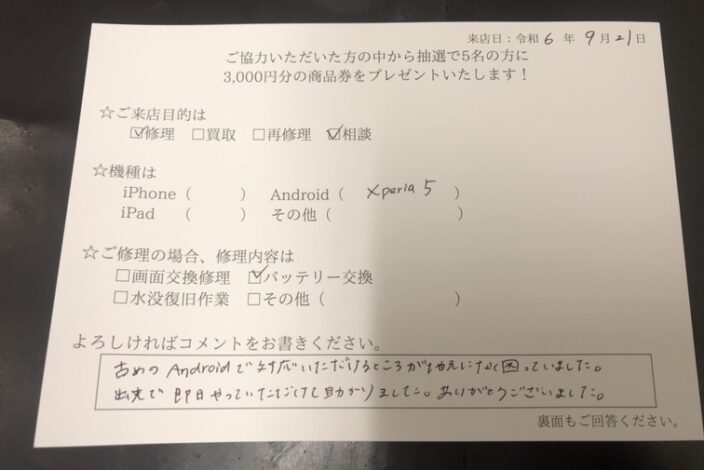 来店日：令和 6 年 9 月 21 日
ご協力いただいた方の中から抽選で5名の方に
3,000円分の商品券をプレゼントいたします！
☆ご来店目的は
☑修理 □買取 □再修理 ☑相談
☆機種は
iPhone（ ） Android（ Xperia 5 ）
iPad （ ） その他（ ）
☆ご修理の場合、修理内容は
□画面交換修理 ☑バッテリー交換
□水没復旧作業 □その他（ ）
よろしければコメントをお書きください。
古めの Androidで対応いただけるところが なく困っていました。
即日やっていただけて助かりました。ありがとうございました。
裏面もご回答ください。